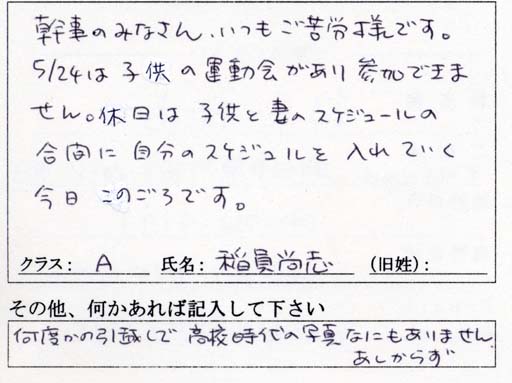 幹事のみなさん、いつもご苦労様です。
5/24は子供の運動会があり参加できま
せん。休日は子供と妻のスケジュールの
合間に自分のスケジュルを入れていく
今日このごろです。
クラス： A 氏名： 稲員尚志 （旧姓）：
その他、何かあれば記入して下さい
何度かの引越しで高校時代の写真なにもありません
あしからず